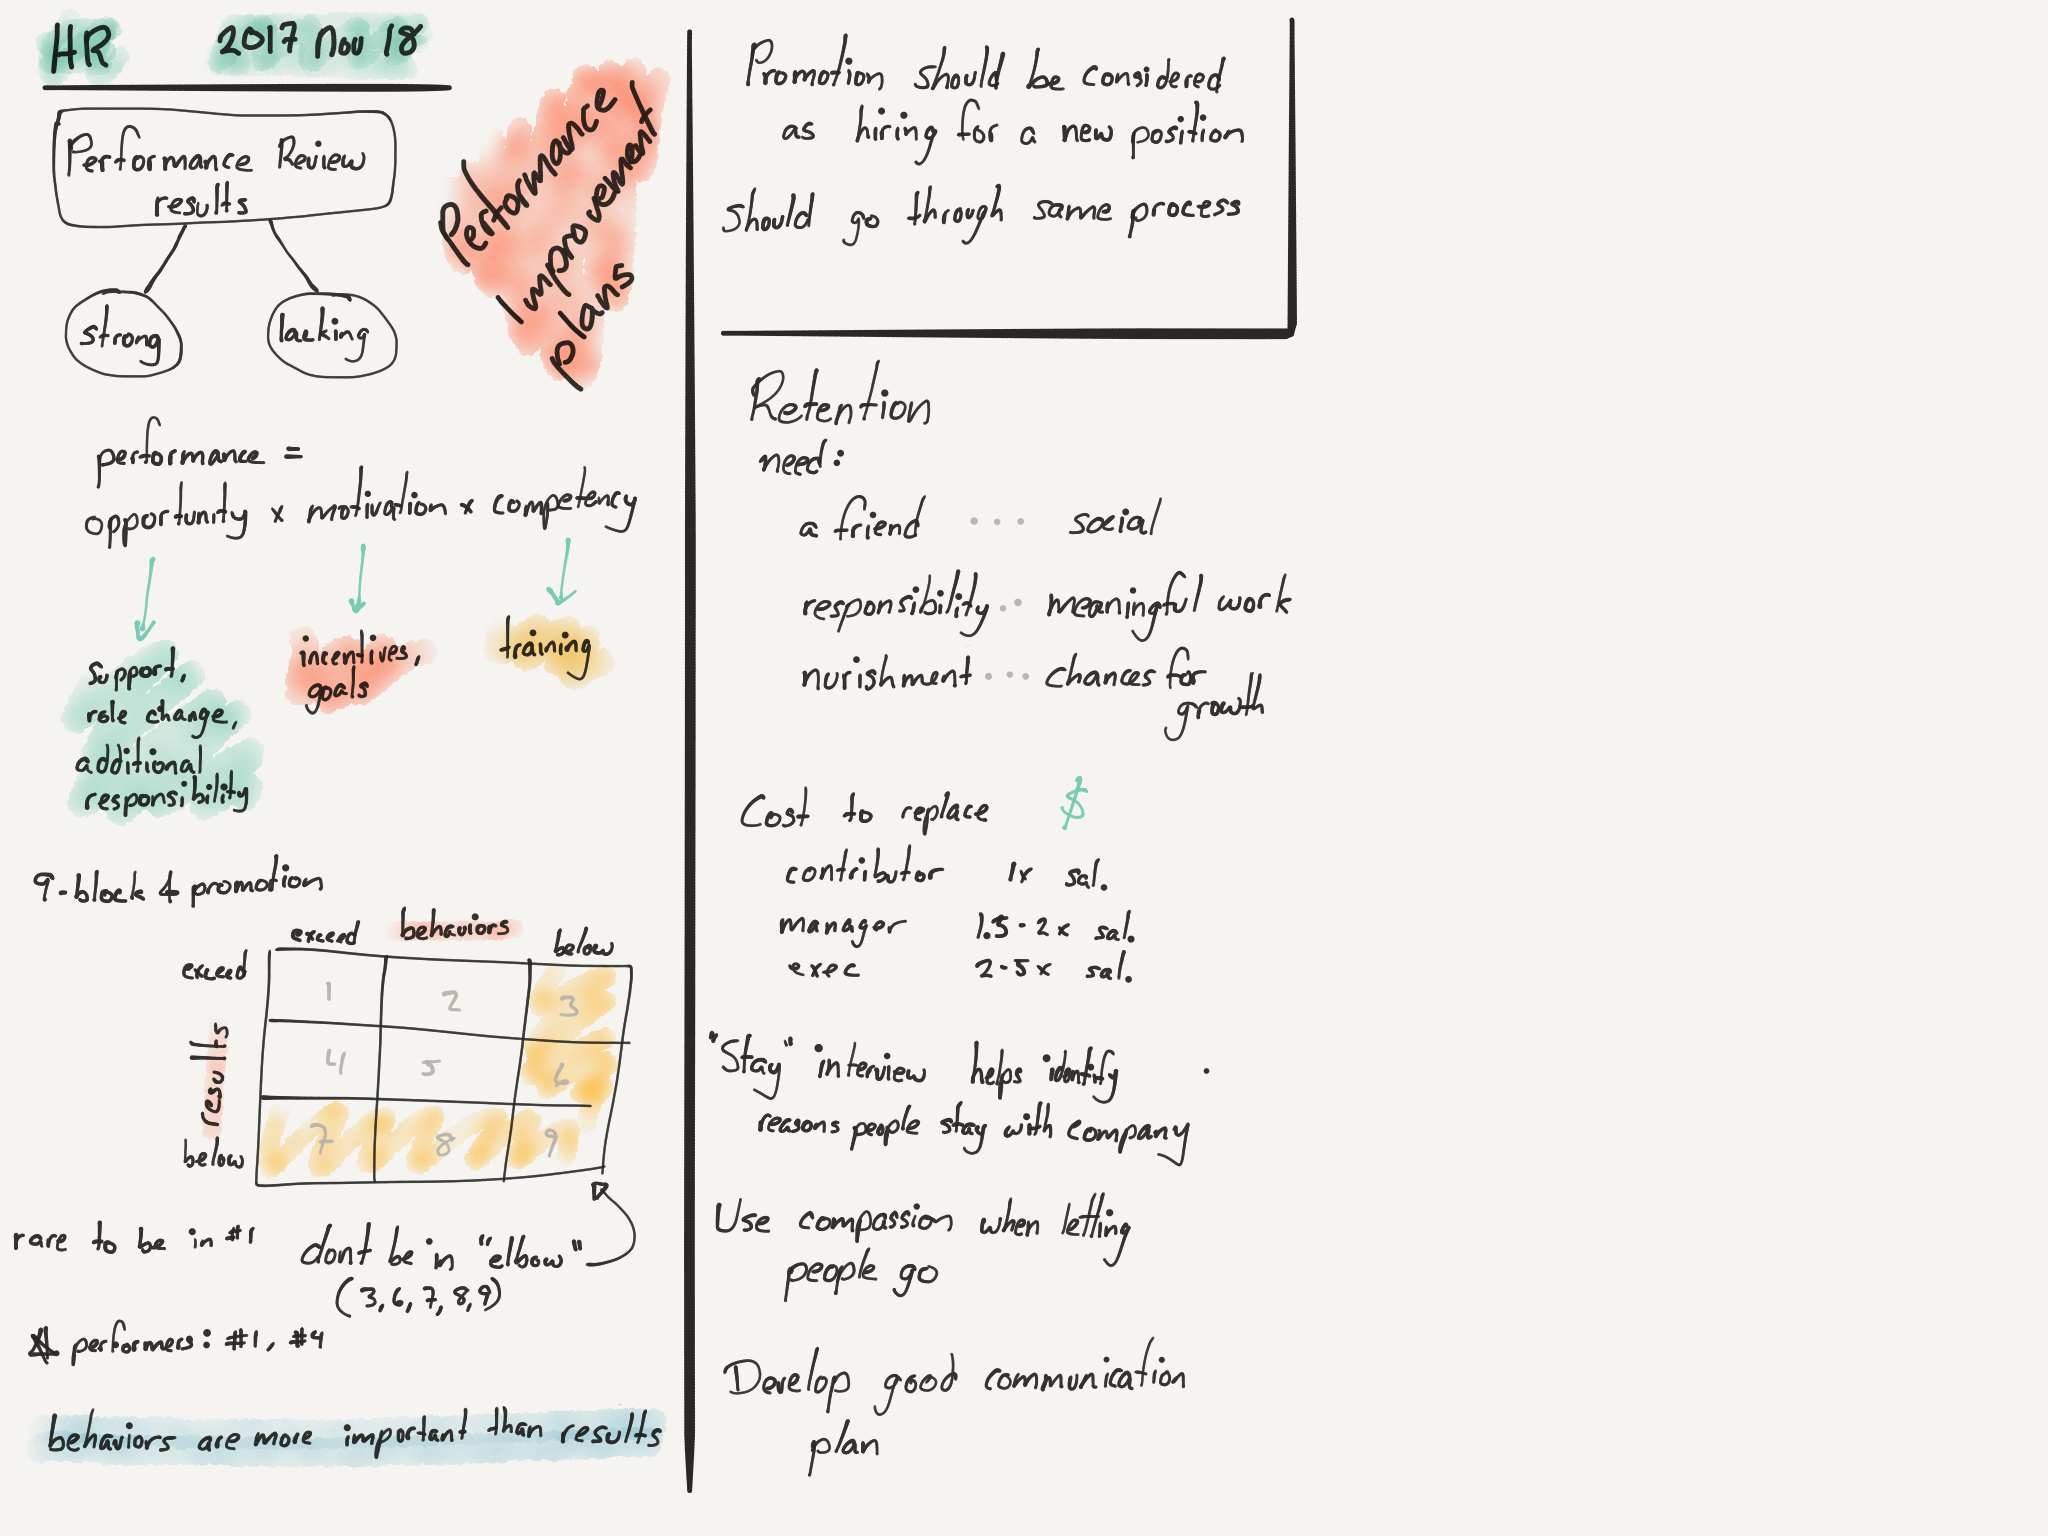 HR 2017 Nov 18
Performance Review
results
strong
lacking
Performance
Improvement
plans
performance =
opportunity x motivation x competency
support,
role change,
additional
responsibility
incentives,
goals
training
9-block 4 promotion
behaviors
exceed below
exceed
results
below
1 2 3
4 5 6
7 8 9
rare to be in #1
dont be in "elbow"
(3, 6, 7, 8, 9)
performers: #1, #4
behaviors are more important than results
Promotion should be considered
as hiring for a new position
should go through same process
Retention
need:
a friend ... social
responsibility .. meaningful work
nurishment ... chances for
growth
Cost to replace $
contributor 1x sal.
manager 1.5-2x sal.
exec 2-5x sal.
"Stay" interview helps identify
reasons people stay with company
Use compassion when letting
people go
Develop good communication
plan